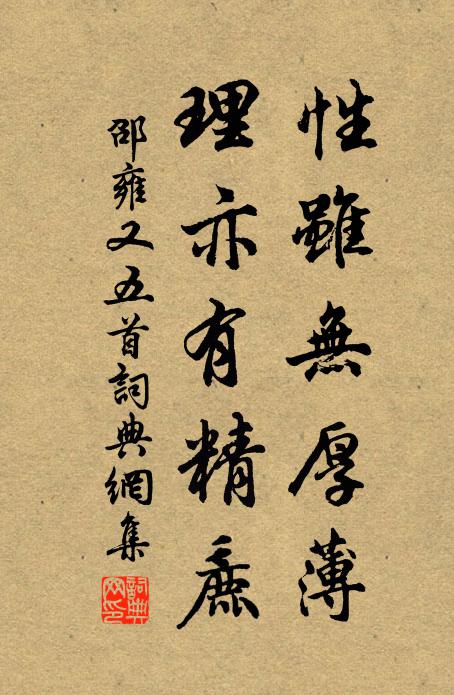 性雖無厚薄
理亦有精麄
邵雍又五首詞典網集
詞典
网印